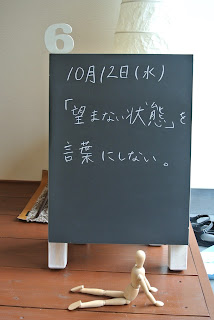 6
10月12日(水)
「望まない状態」を
言葉にしない。